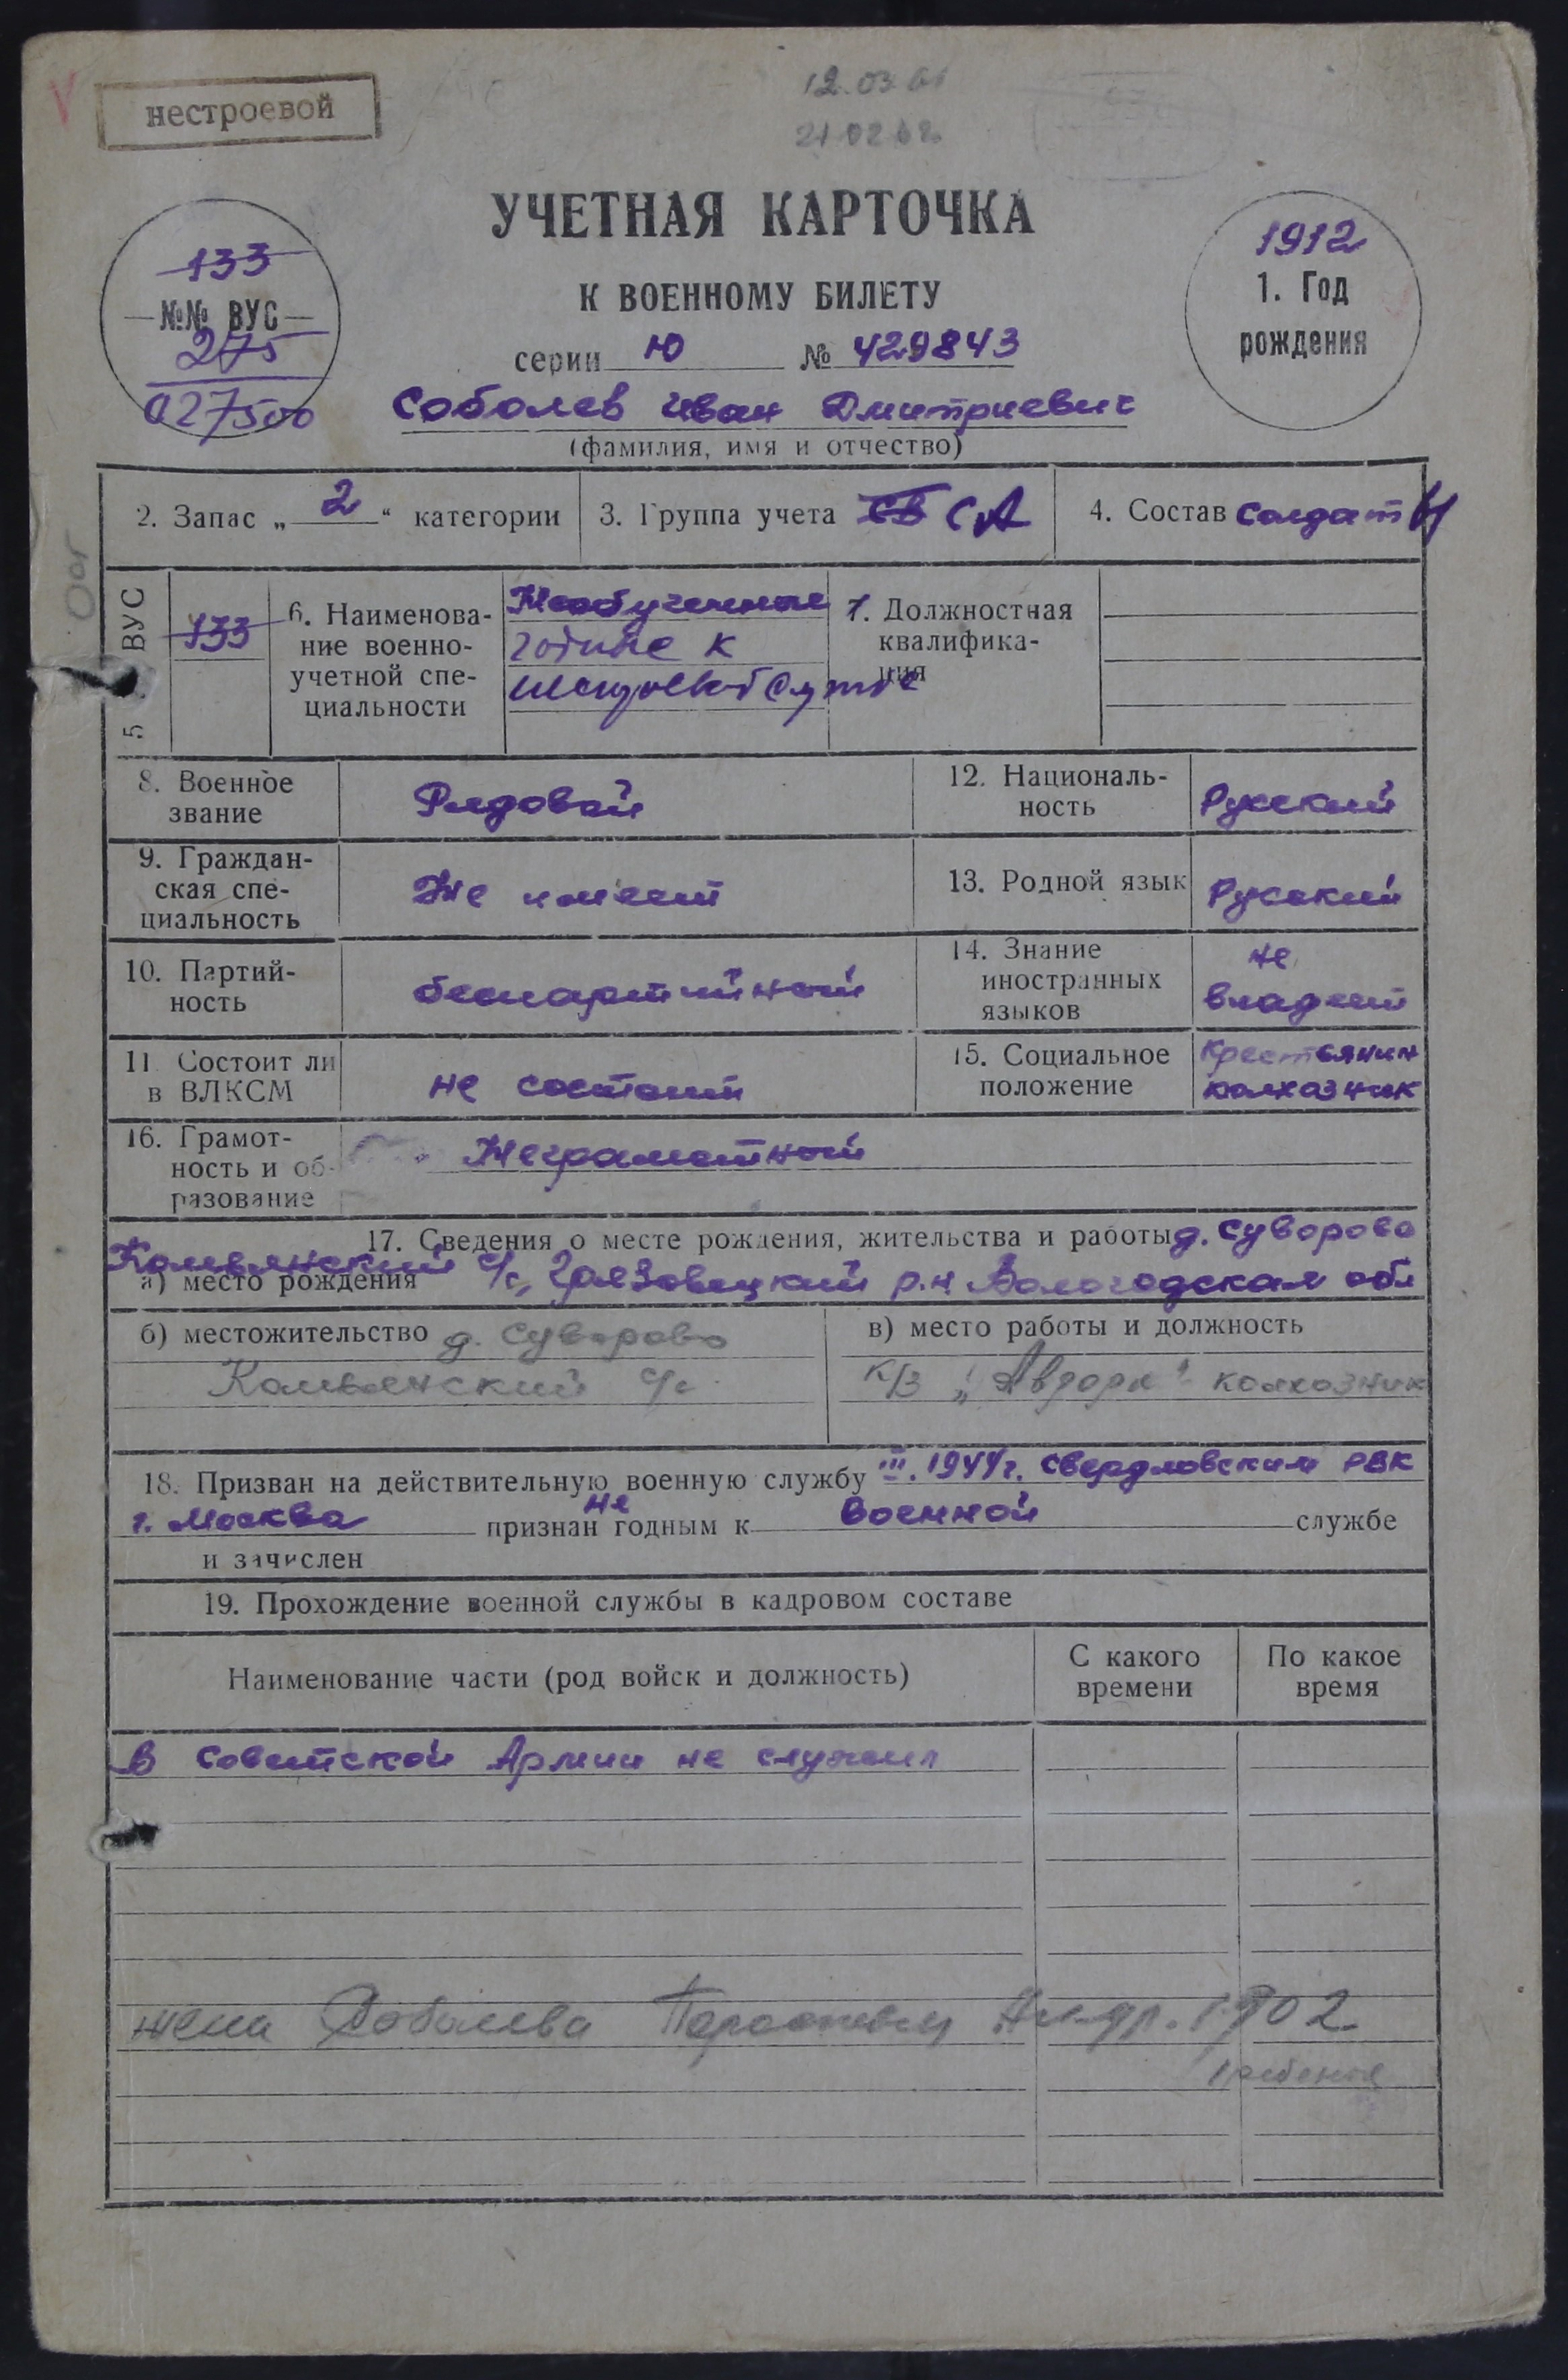 нестроевой
12.03.61
21.02.62
УЧЕТНАЯ КАРТОЧКА
К ВОЕННОМУ БИЛЕТУ
133
№№ ВУС
275
027500
1912
1. Год
рождения
серии Ю № 429843
Соболев Иван Дмитриевич
(фамилия, имя и отчество)
2. Запас „ 2 “ категории
3. Группа учета СВ СА
4. Состав солдат
5. ВУС
133
6. Наименова-
ние военно-
учетной спе-
циальности
Необученные
годные к
службе
7. Должностная
квалифика-
ция
8. Военное
звание
Рядовой
12. Националь-
ность
Русский
9. Граждан-
ская спе-
циальность
Не имеет
13. Родной язык
Русский
10. Партий-
ность
беспартийной
14. Знание
иностранных
языков
не
владеет
11. Состоит ли
в ВЛКСМ
не состоит
15. Социальное
положение
Крестьянин
колхозник
16. Грамот-
ность и об-
разование
Неграмотной
17. Сведения о месте рождения, жительства и работы д. Суворово
а) место рождения Комьянский с/с, Грязовецкий р.н Вологодская обл
б) местожительство д. Суворово
Комьянский с/с
в) место работы и должность
к/з „Аврора“ колхозник
18. Призван на действительную военную службу III. 1944г. Свердловским РВК
г. Москва признан не годным к военной службе
и зачислен
19. Прохождение военной службы в кадровом составе
Наименование части (род войск и должность)
С какого
времени
По какое
время
В Советской Армии не служил
жена Соболева 1902
1 ребенок